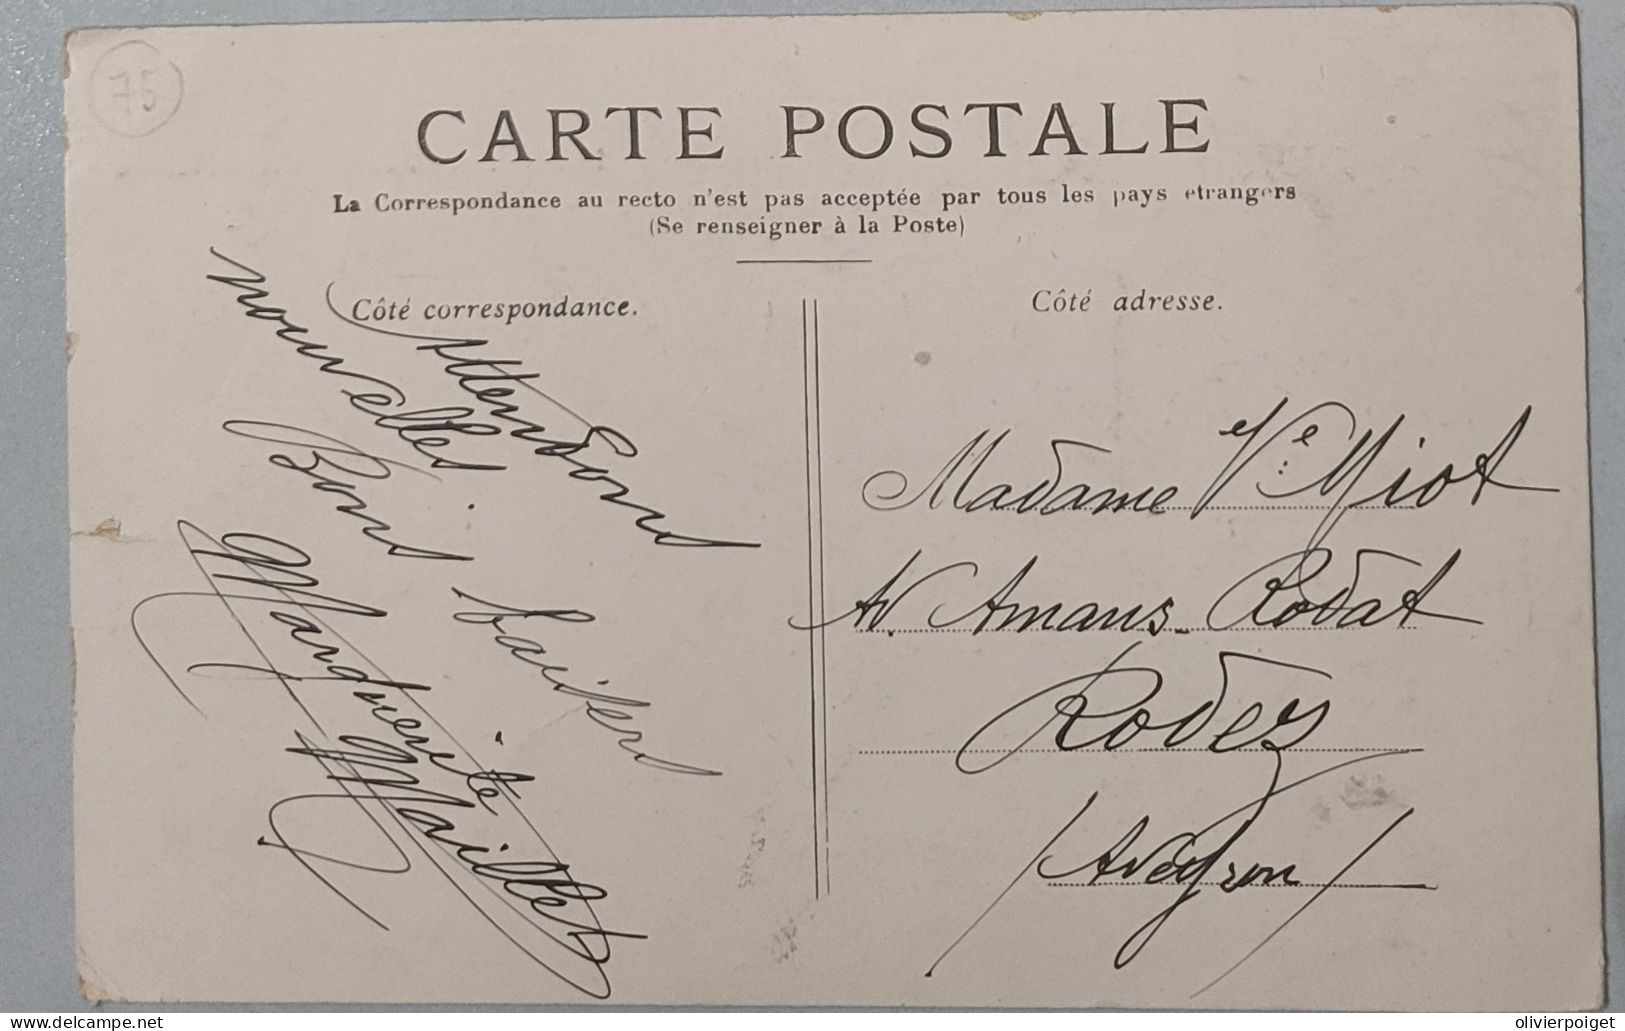 75
CARTE POSTALE
La Correspondance au recto n'est pas acceptée par tous les pays etrangers
(Se renseigner à la Poste)
Côté correspondance.
Attendons
nouvelles.
Bons baisers
Marguerite
Maillet
Côté adresse.
Madame Vve Miot
Av. Amans-Rodat
Rodez
(Aveyron)
delcampe.net
olivierpoiget